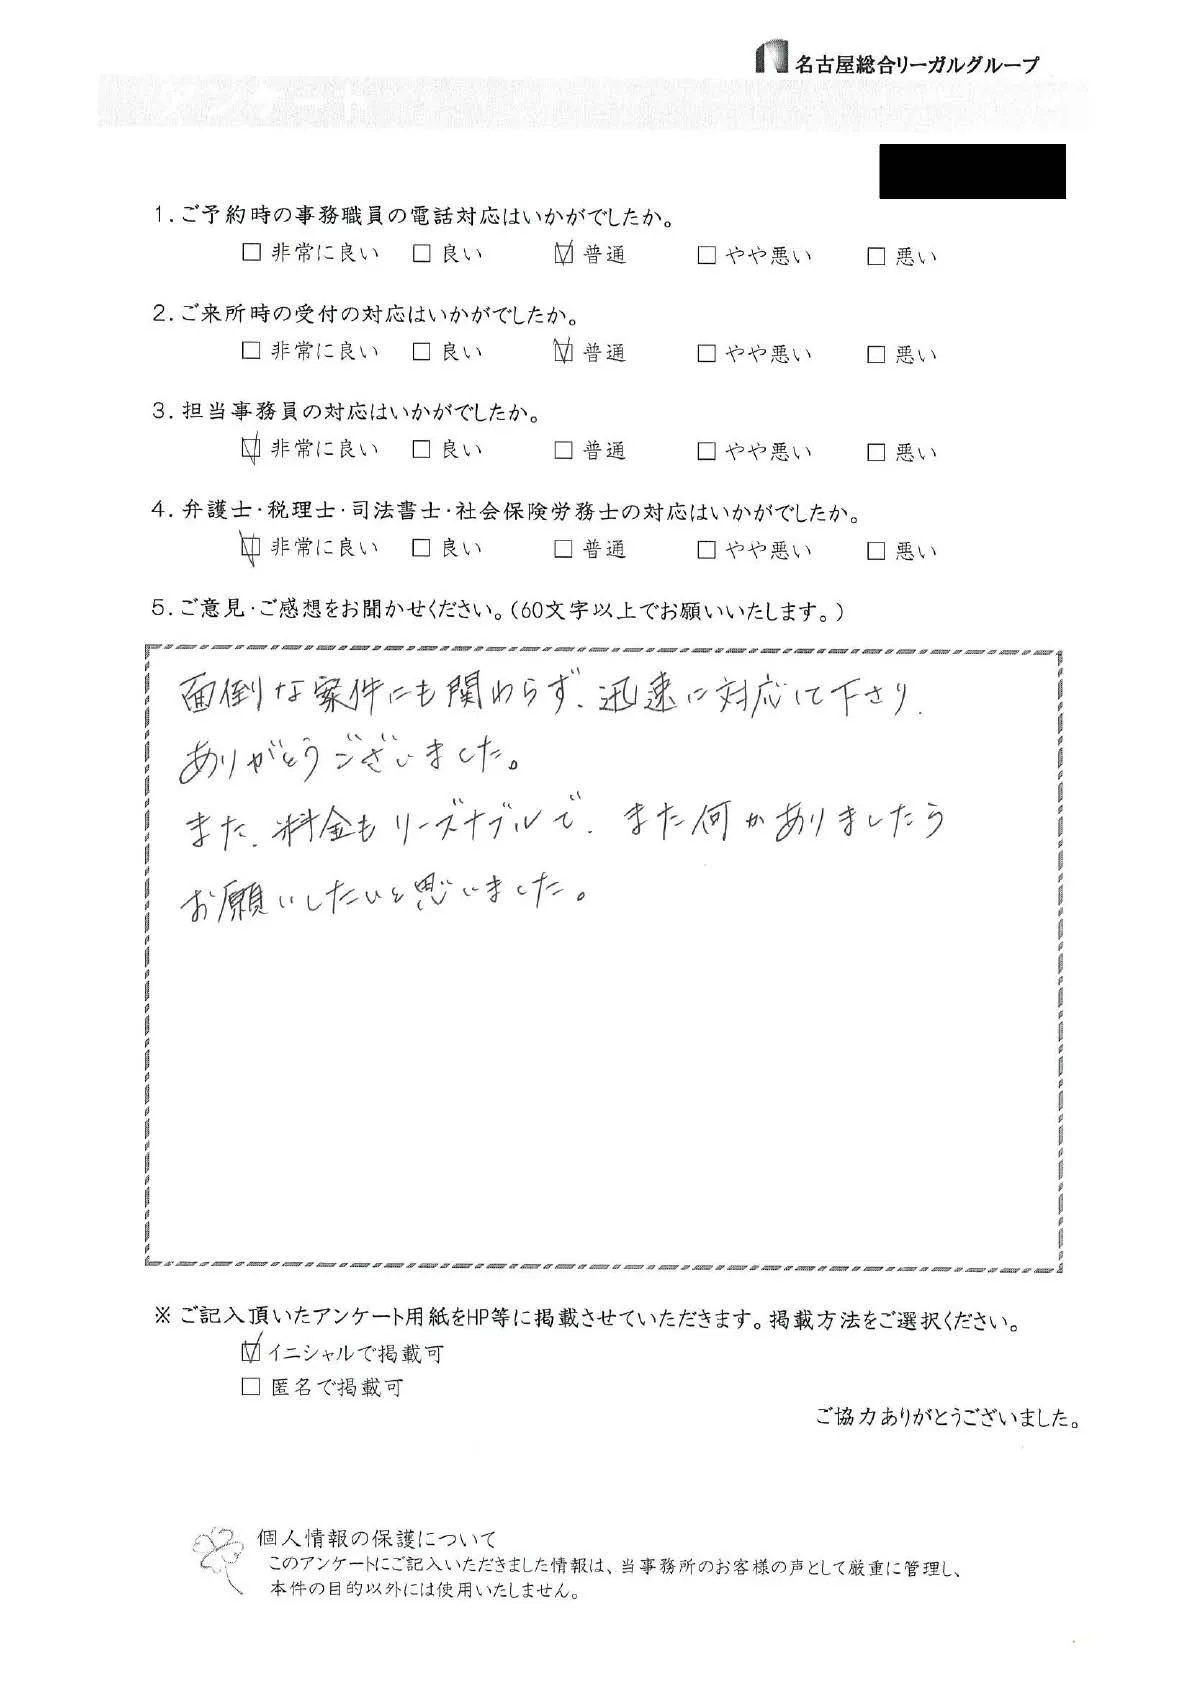 名古屋総合リーガルグループ
アンケート
1. ご予約時の事務職員の電話対応はいかがでしたか。
□ 非常に良い □ 良い ☑ 普通 □ やや悪い □ 悪い
2. ご来所時の受付の対応はいかがでしたか。
□ 非常に良い □ 良い ☑ 普通 □ やや悪い □ 悪い
3. 担当事務員の対応はいかがでしたか。
☑ 非常に良い □ 良い □ 普通 □ やや悪い □ 悪い
4. 弁護士・税理士・司法書士・社会保険労務士の対応はいかがでしたか。
☑ 非常に良い □ 良い □ 普通 □ やや悪い □ 悪い
5. ご意見・ご感想をお聞かせください。(60文字以上でお願いいたします。)
面倒な案件にも関わらず、迅速に対応して下さり、
ありがとうございました。
また、料金もリーズナブルで、また何かありましたら
お願いしたいと思いました。
※ ご記入頂いたアンケート用紙をHP等に掲載させていただきます。掲載方法をご選択ください。
☑ イニシャルで掲載可
□ 匿名で掲載可
ご協力ありがとうございました。
個人情報の保護について
このアンケートにご記入いただきました情報は、当事務所のお客様の声として厳重に管理し、
本件の目的以外には使用いたしません。